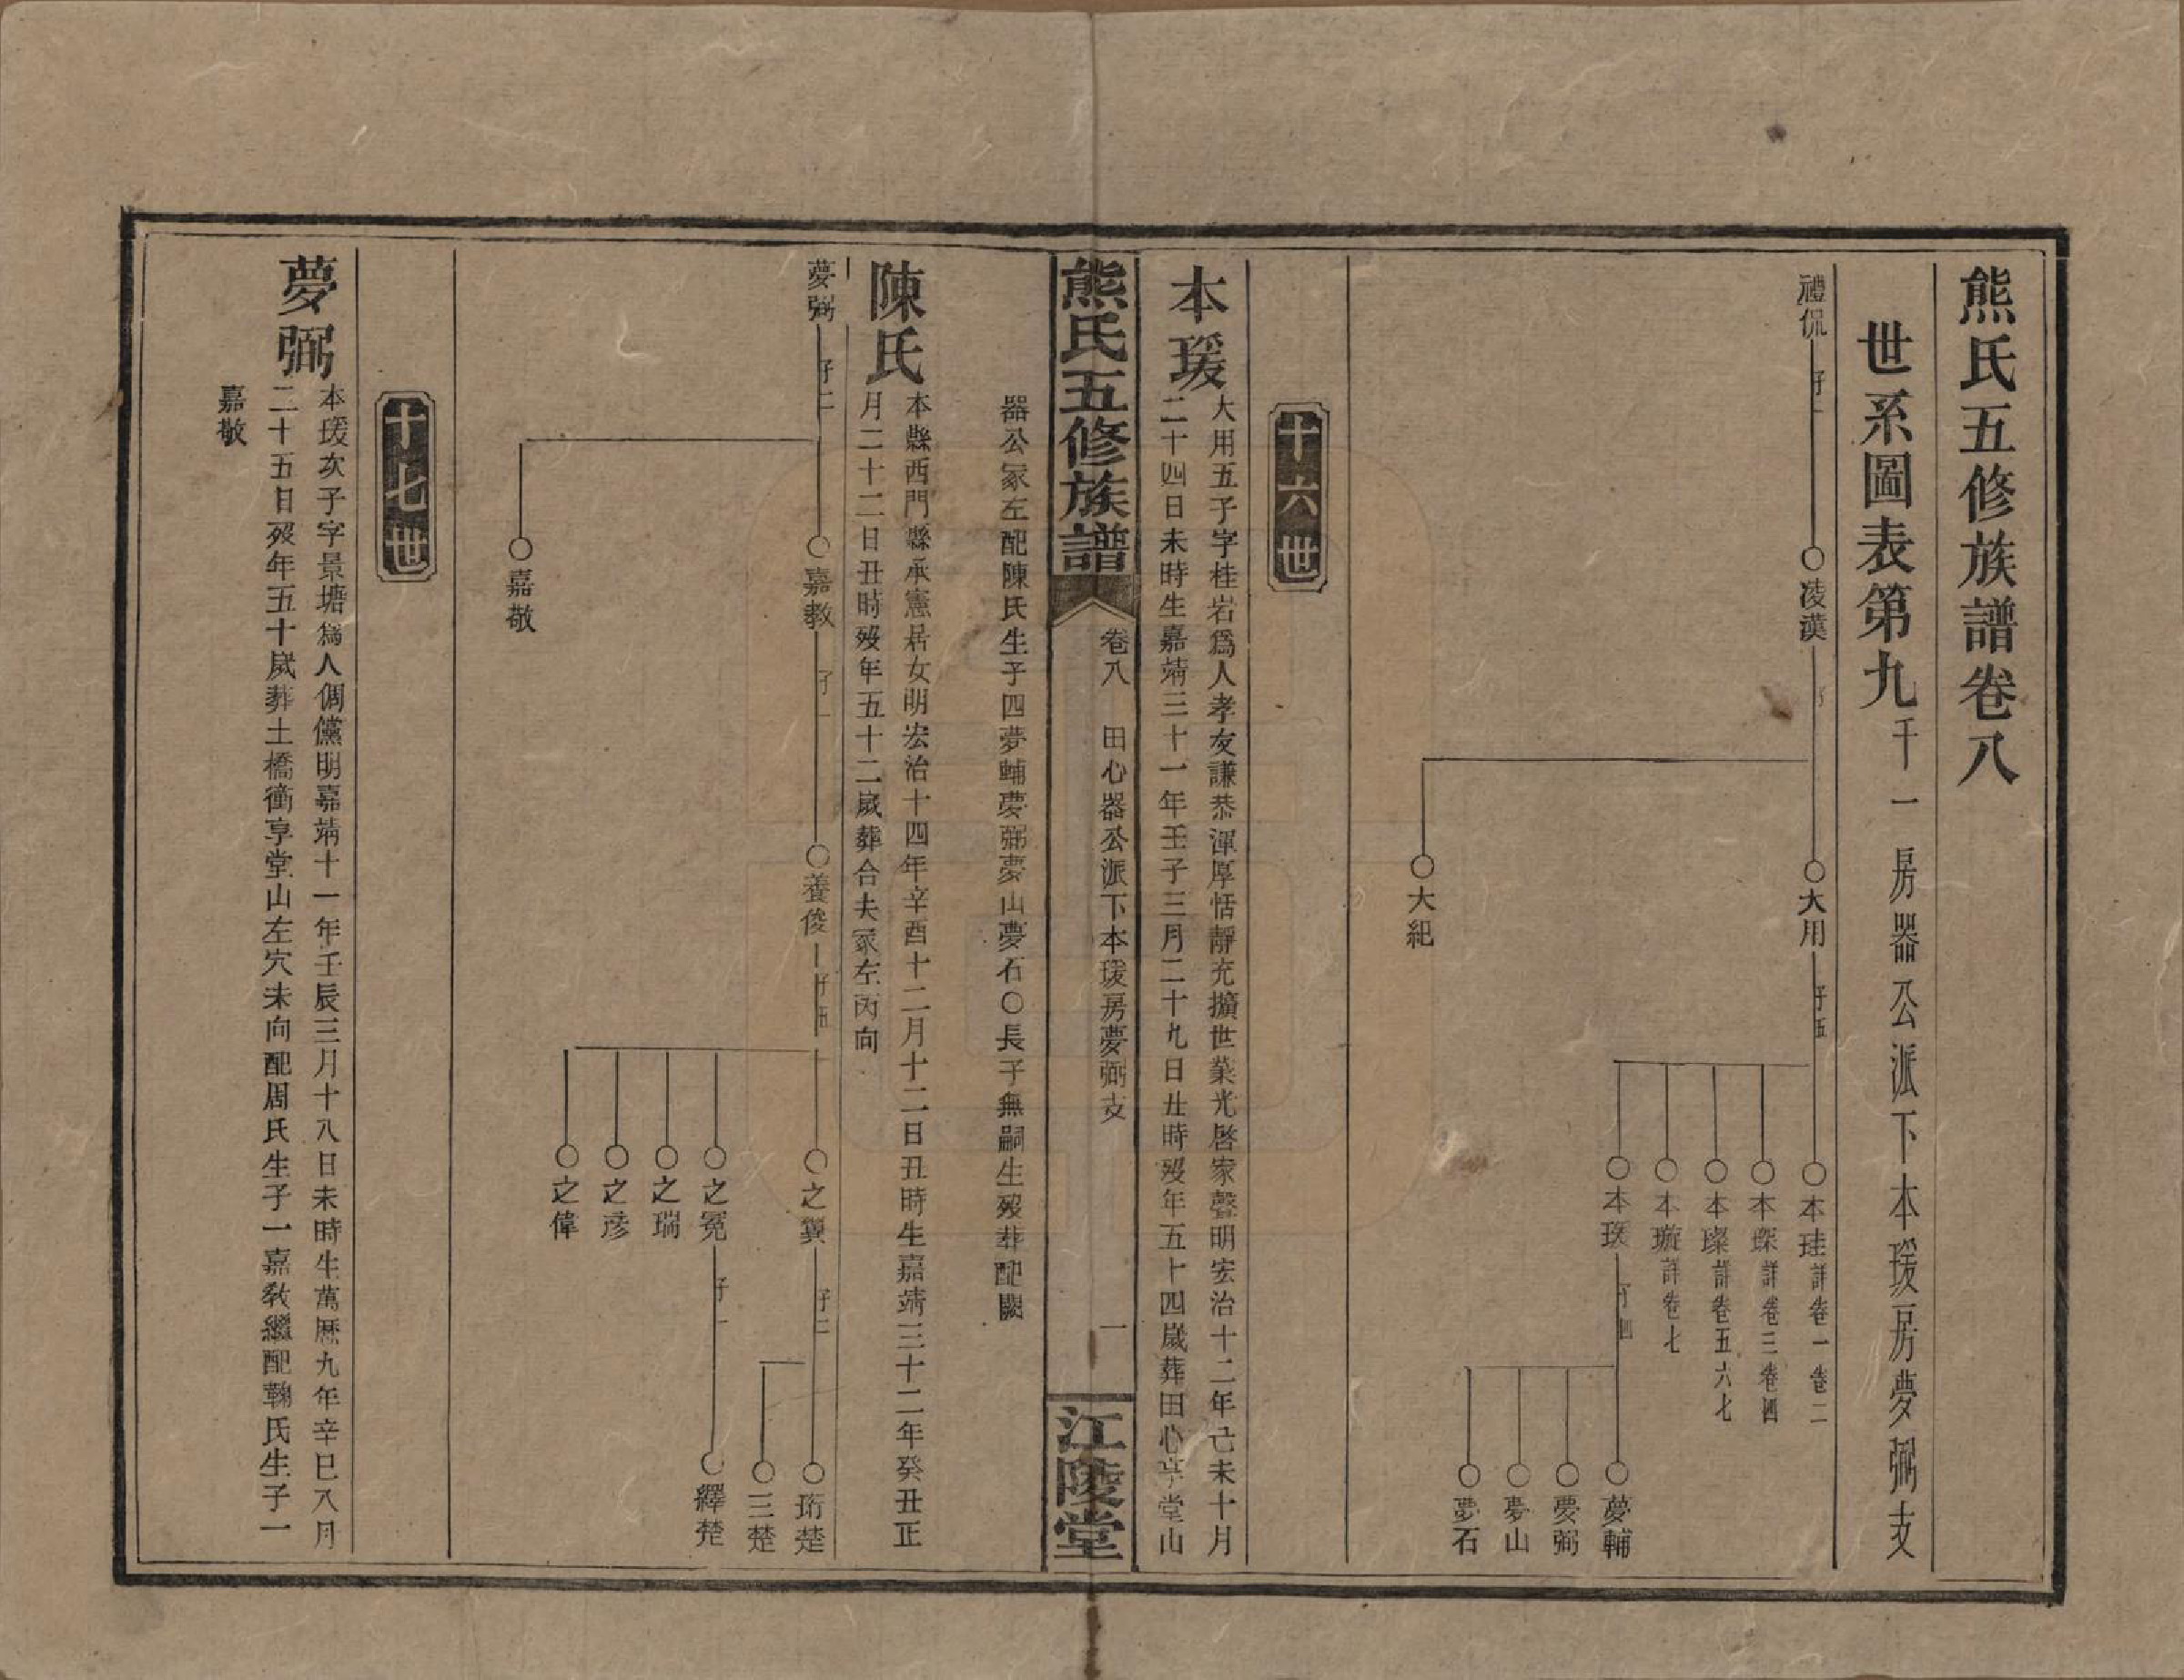 熊氏五修族譜卷八
世系圖表第九 千一房器公派下本瑗房夢弼支
禮侃 子一
凌漢
大用 子五
大紀
本珪 詳卷一卷二
本琛 詳卷三卷四
本璨 詳卷五六七
本璇 詳卷七
本瑗 子四
夢輔
夢弼
夢山
夢石
十六世
本瑗
大用五子字桂岩爲人孝友謙恭渾厚恬靜充擴世業光啓家聲明宏治十二年己未十月
二十四日未時生嘉靖三十一年壬子三月二十九日丑時歿年五十四歲葬田心亭堂山
熊氏五修族譜 卷八 田心器公派下本瑗房夢弼支 一 江陵堂
器公冢左配陳氏生子四夢輔夢弼夢山夢石〇長子無嗣生歿葬配闕
陳氏
本縣西門縣承憲居女明宏治十四年辛酉十二月十二日丑時生嘉靖三十二年癸丑正
月二十二日丑時歿年五十二歲葬合夫冢左丙向
夢弼 子二
嘉教 子一
嘉敬
養俊 子五
之翼 子二
之冕 子一
之瑞
之彥
之偉
珩楚
三楚
繹楚
十七世
夢弼
本瑗次子字景塘爲人倜儻明嘉靖十一年壬辰三月十八日未時生萬曆九年辛巳八月
二十五日歿年五十歲葬土橋衝享堂山左穴未向配周氏生子一嘉敎繼配鞠氏生子一
嘉敬